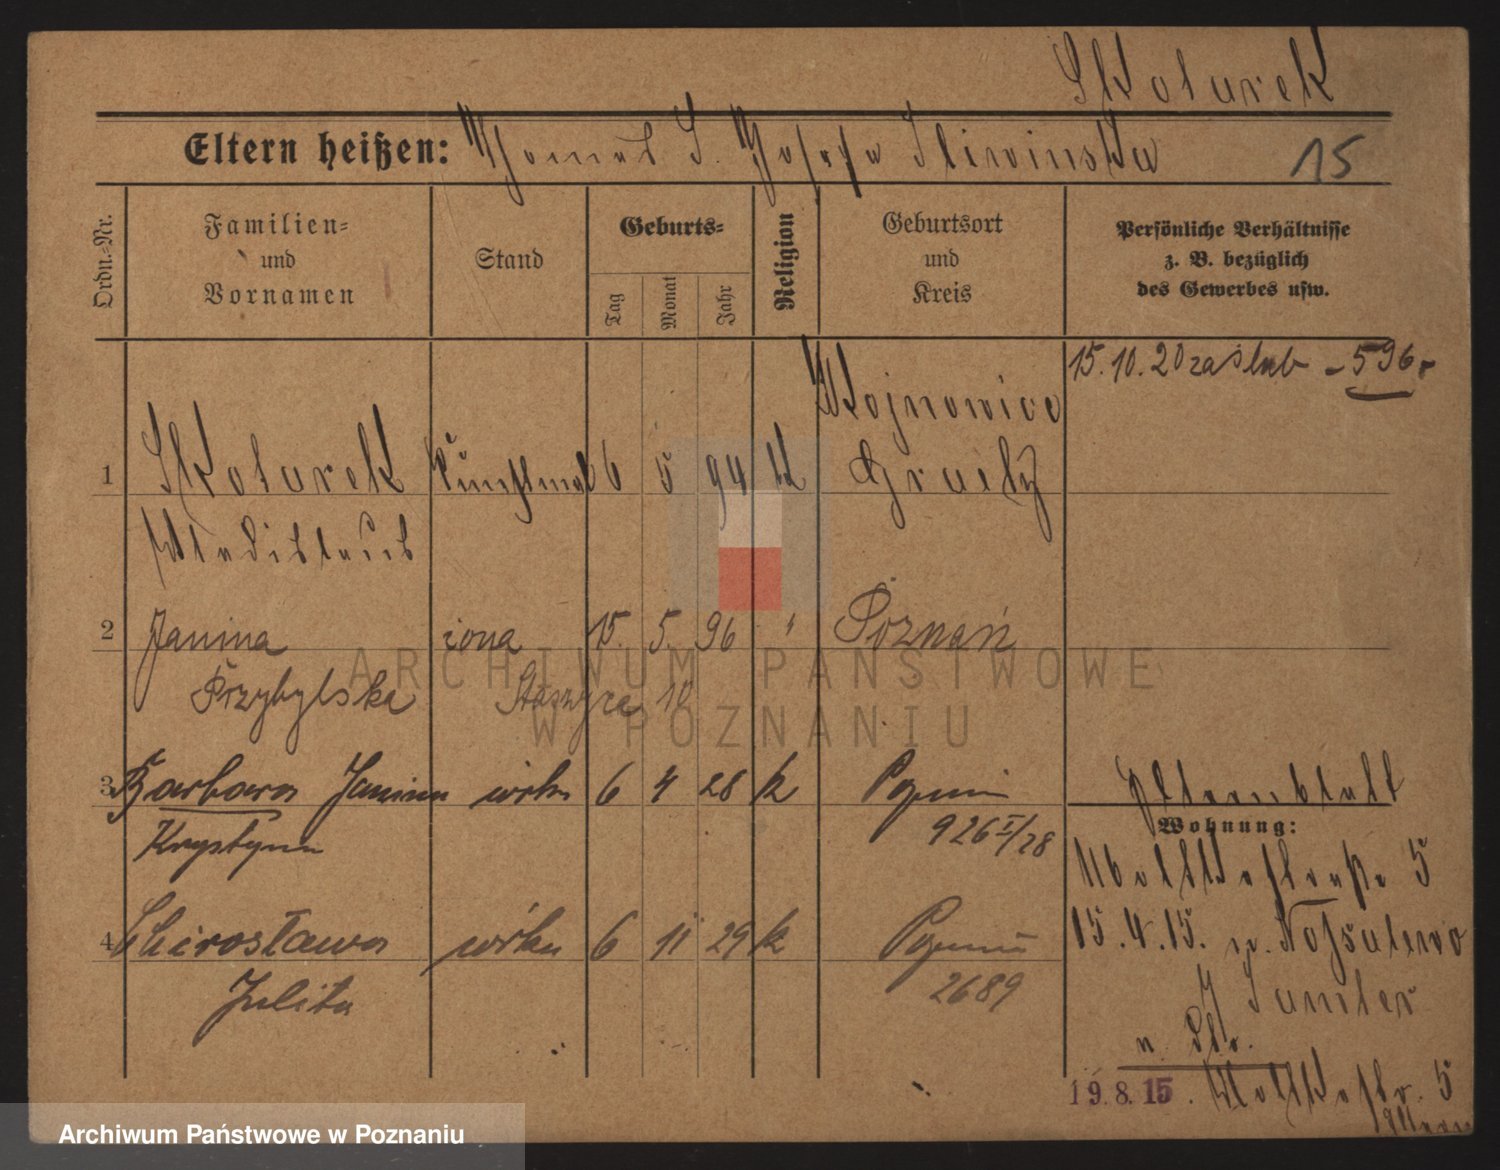 Skoturek
Eltern heißen: Thomas S. Josefa Sliwinska 15
Ordn.-Nr.
Familien-
und
Vornamen
Stand
Geburts-
Tag
Monat
Jahr
Religion
Geburtsort
und
Kreis
Persönliche Verhältnisse
z. B. bezüglich
des Gewerbes usw.
15.10.20 za ślub - 596 -
Wojnowice
1 Skoturek 6 5 94 k Graetz
Wladislaus
2 Janina żona 15. 5. 96 " Poznań
Przybylska Staszyca 10
3 Barbara Janina córka 6 4 28 k Poznań
Krystyna 926 I/28
Elternblatt
Wohnung:
Moltkestraße 5
4 Mirosława córka 6 11 29 k Poznań
Julita 2689
15.4.15. n.
Samter
19.8.15. Moltkestr. 5
ARCHIWUM PAŃSTWOWE
W POZNANIU
Archiwum Państwowe w Poznaniu